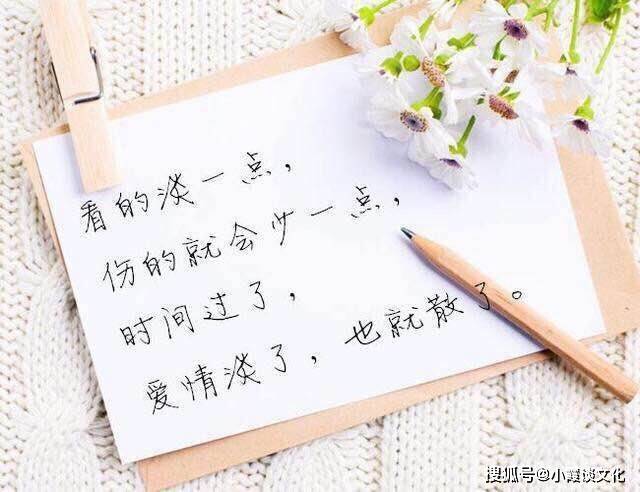 看的淡一点，
伤的就会少一点，
时间过了，
爱情淡了，也就散了。
搜狐号@小霞谈文化